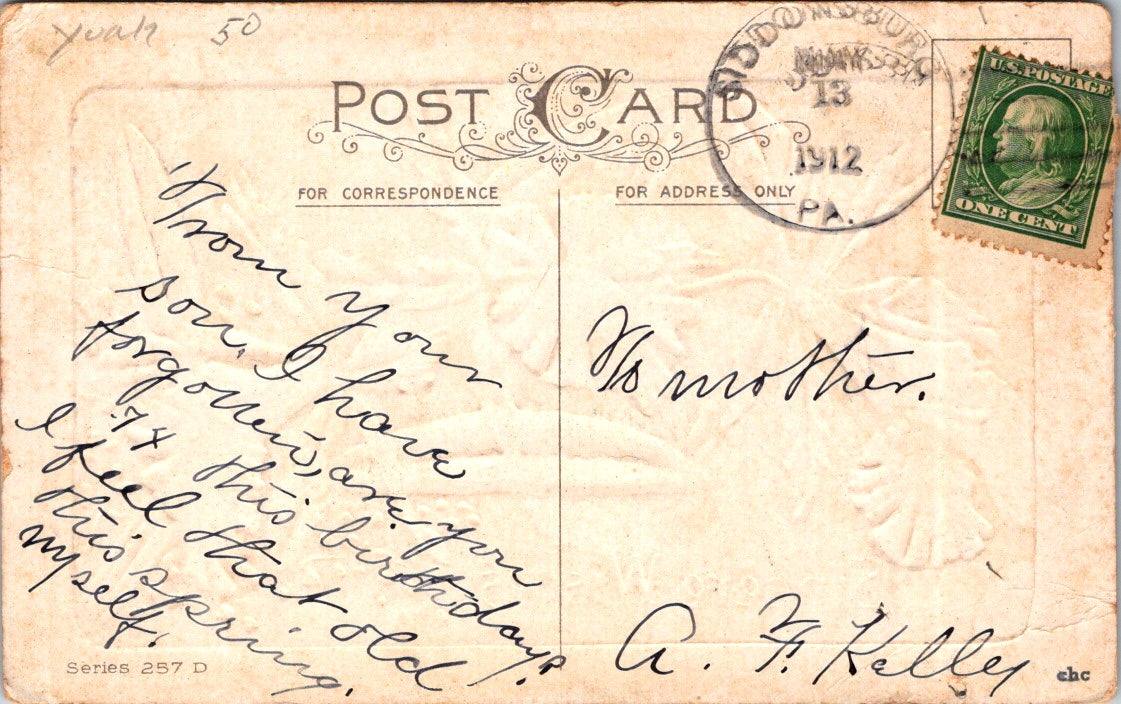 50
POST CARD
FOR CORRESPONDENCE
FOR ADDRESS ONLY
13
1912
PA.
U.S. POSTAGE
ONE CENT
From your
son. I have
forgotten, are you
74 this birthday?
I feel that old
this spring
myself.
To mother.
A. F. Kelley
Series 257 D
chc